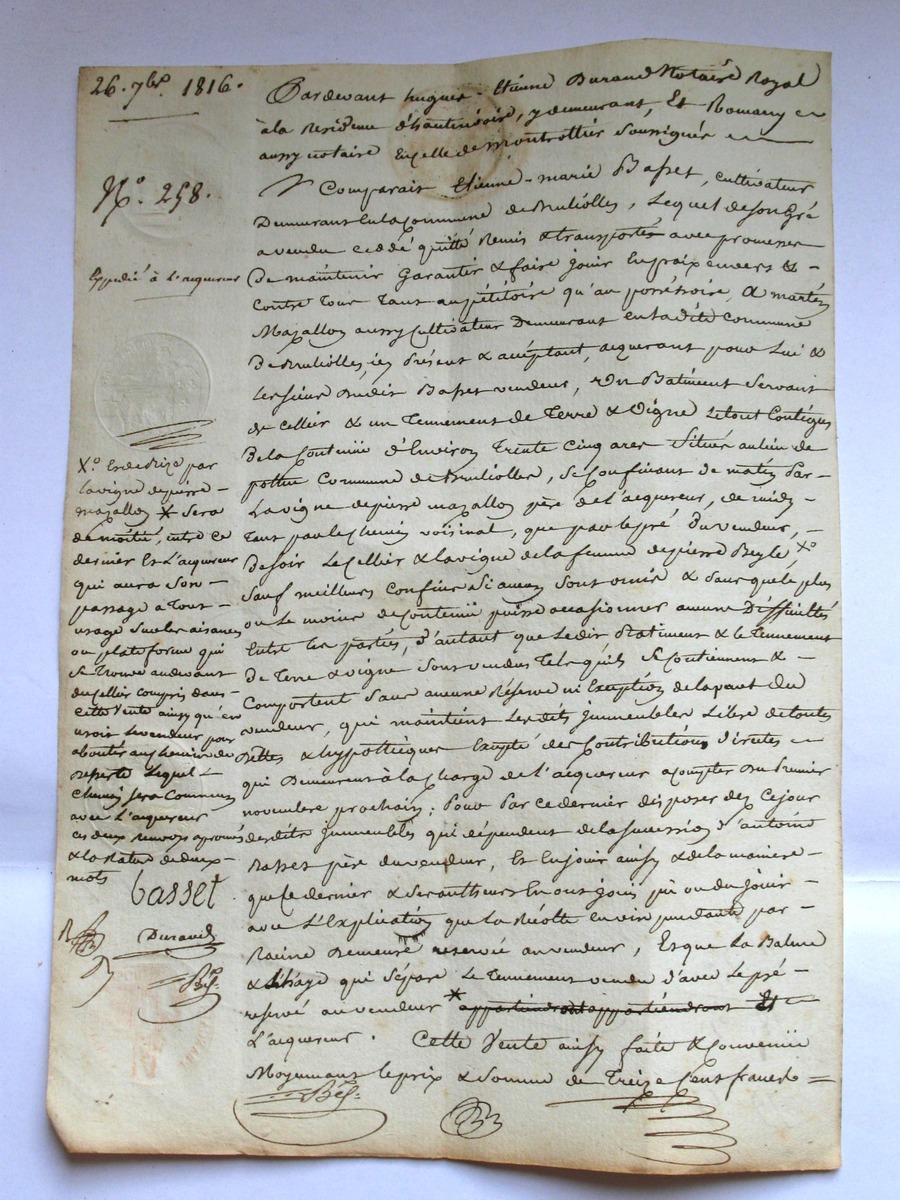 26. 7bre. 1816.
N.º 258.
Expedié à l'acquereur
Pardevant hugues-Etienne Durand Notaire Royal
à la Residence d'hauterivoire, y demeurant, Et Romany
aussy notaire En celle de montrottier Soussignés
Comparait Etienne-marie Basset, cultivateur
Demeurant En la Commune de Brulliolles, Lequel de son gré
a vendu cedé quitté Remis & transportés avec promesse
De maintenir garantir & faire jouir En paix envers &
contre tous Tant au pétitoire qu'au possessoire, A martin
Mazallon aussy cultivateur Demeurant en ladite commune
De Brulliolles, icy Présent & acceptant, acquerant pour Lui &
Les siens dudit Basset vendeur, Un Batiment Servant
de cellier & un Tennement de Terre & Vigne Le tout Contigus
De la Contenue d'Environ Trente cinq ares Situés au lieu de
Commune de Brulliolles, Se Confinant de matin Par
La vigne de pierre mazallon père de L'acquereur, de midy
Tant par le chemin voisinal, que par le pré du vendeur,
De soir Le Cellier & la vigne de la femme de pierre Beyle, Xº
Sauf meilleurs confins Si aucuns Sont omis & Sans que le plus
ou Le moins de contenue puisse occasionner aucune Difficultés
Entre les parties, d'autant que Le dit Batiment & le Tennement
De Terre & vigne Sont vendus Tels qu'ils Se Contiennent &
Comportent Sans aucune Réserve ni Exeption de la part du
vendeur, qui maintient Les dits jmmeubles Libre de toutes
Dettes & hypothèques Exepté des Contributions directes
qui Demeurent à la charge de l'acquereur a compter du Premier
novembre prochain; Pour Par ce dernier disposer dez Ce jour
desdits jmmeubles qui dépendent de la sucession d'antoine
Basset père du vendeur, Et En jouir ainsy & de la maniere
que Ce dernier & Ses autheurs En ont joui pû ou du jouir
avec L'Explication que La Récolte en vin pendante par
Racine Demeure reservée au vendeur, Et que La Balme
& L'haye qui Sépare Le Tennement vendu d'avec Le pré
reservé au vendeur * appartiendront appartiendront Et
L'acquereur. Cette Vente ainsy faite & Convenue
Moyennant le prix & Somme de Treize Cent francs
Xº Et de Bize par
La vigne de pierre
mazallon * Sera
de moitié, entre ce
dernier Et L'acquereur
qui aura Son
passage a Tout
usage Sur les aisances
ou plate forme qui
Se Trouve au devant
du Cellier compris dans
cette Vente ainsy qu'en
usoit Le vendeur pour
aboutir au chemin de
desserte Lequel
chemin Sera Commun
avec L'acquereur
ces deux renvoys aprouvés
& la Rature de deux
mots
basset
Durand